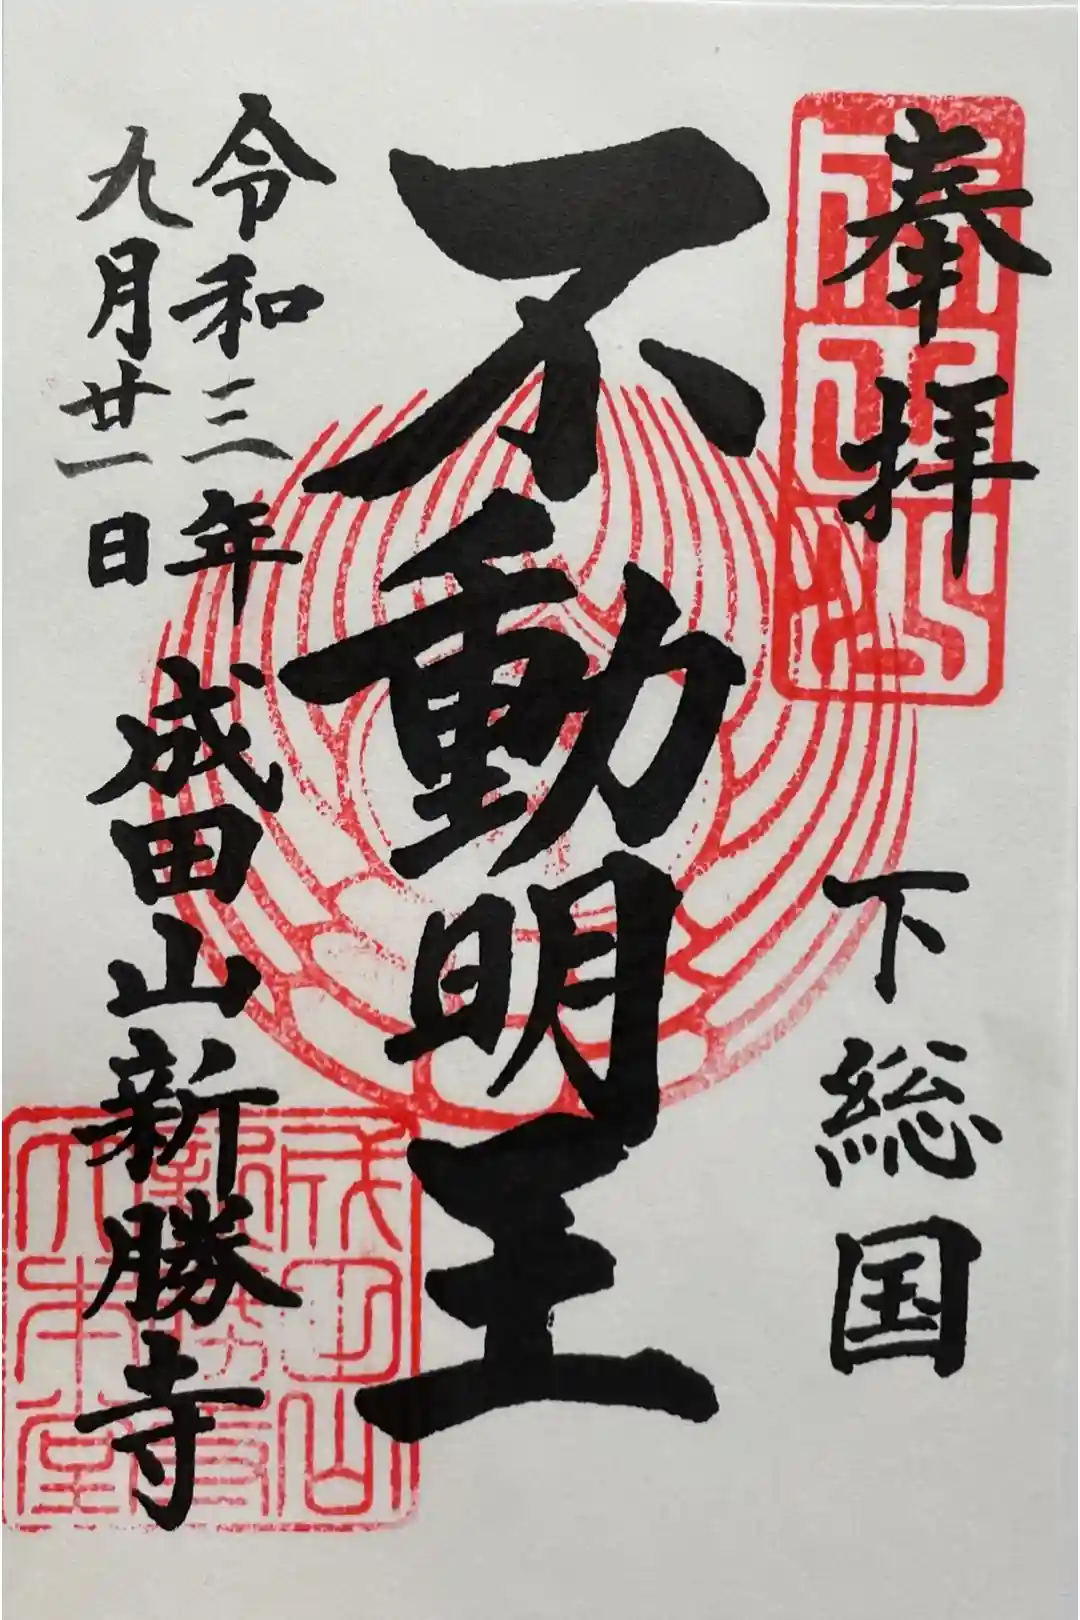 奉拝
下総国
不動明王
令和三年
九月廿一日
成田山新勝寺
成田山
新勝寺
大本堂